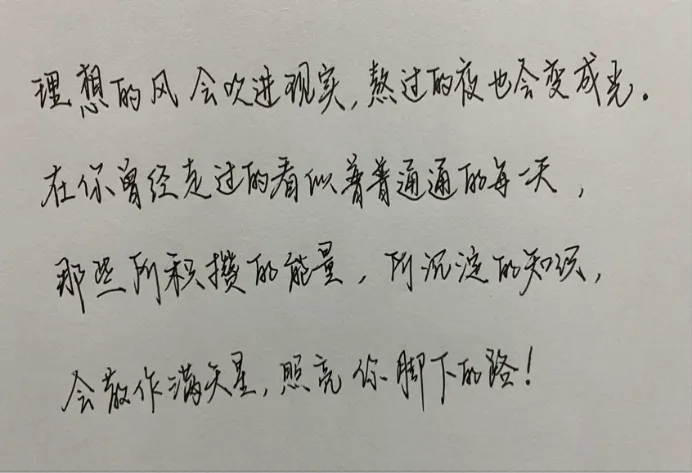 理想的风会吹进现实,熬过的夜也会变成光.
在你曾经走过的看似普普通通的每一天,
那些所积攒的能量,所沉淀的知识,
会散作满天星,照亮你脚下的路!